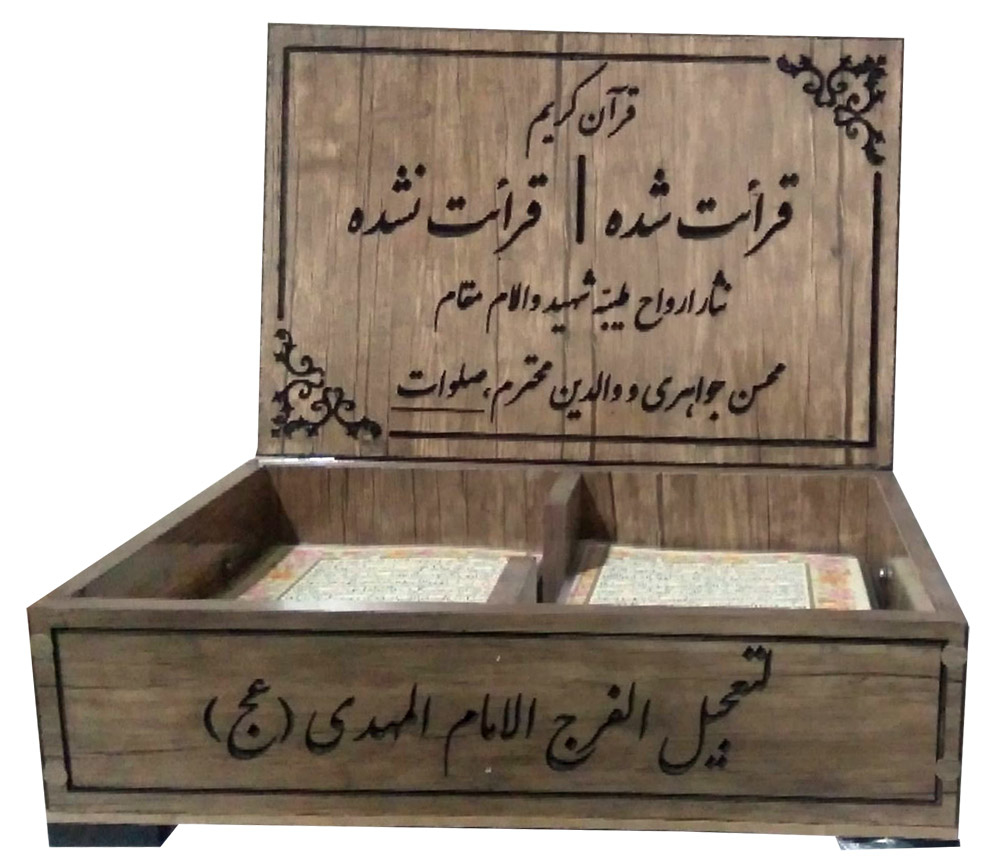 قرآن کریم
قرأت شده | قرأت نشده
نثار ارواح طیبّه شهید والام مقام
محسن جواهری و والدین محترم، صلوات
لتعجیل الفرج الامام المهدی (عج)